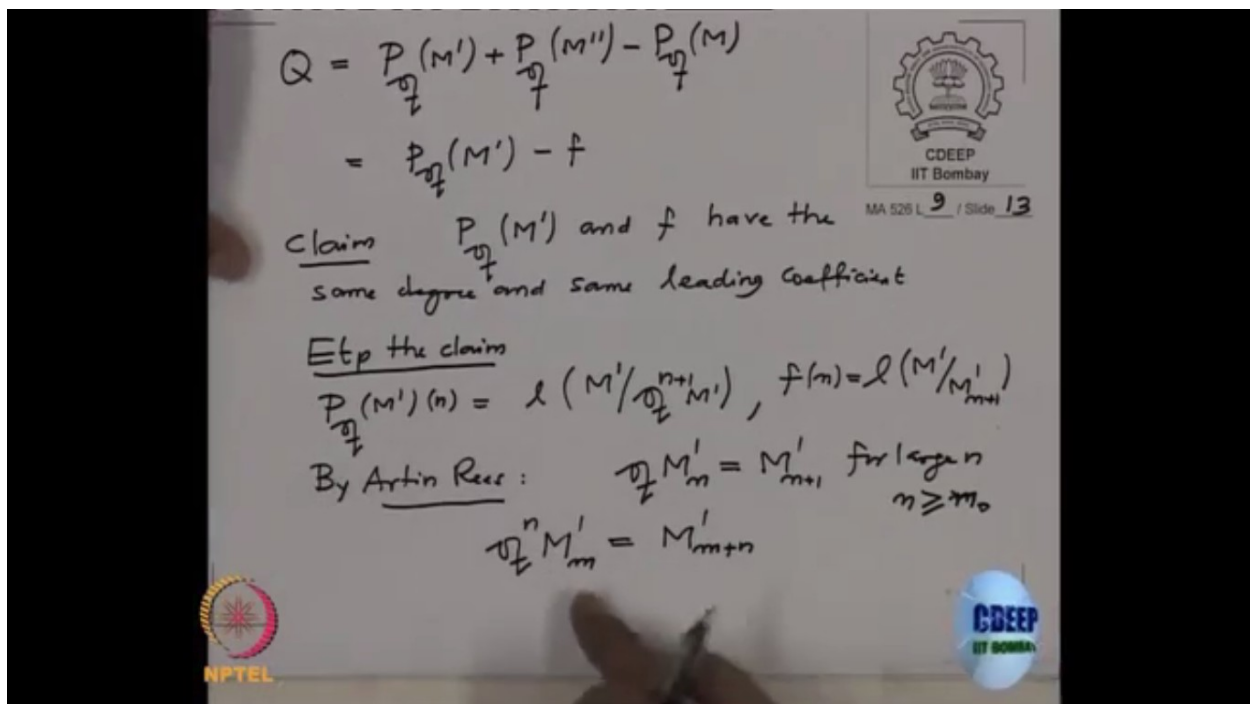 Q = P_𝔮(M') + P_𝔮(M'') − P_𝔮(M)
= P_𝔮(M') − f
CDEEP
IIT Bombay
MA 526 L 9 / Slide 13
Claim P_𝔮(M') and f have the
same degree and same leading coefficient
Etp the claim
P_𝔮(M')(n) = l(M'/𝔮^{n+1}M'), f(n) = l(M'/M'_{n+1})
By Artin Rees: 𝔮M'_n = M'_{n+1} for large n
n ≥ m₀
𝔮^n M'_m = M'_{m+n}
NPTEL
CDEEP
IIT BOMBAY